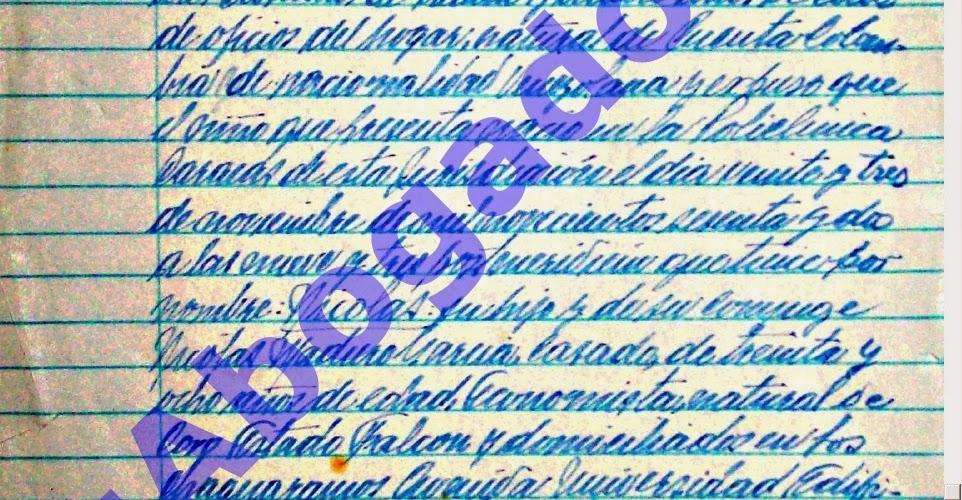 de oficios del hogar, natural de Cucuta Colom-
bia, de nacionalidad venezolana y expuso que
el niño que presenta nacio en la Policlinica
Caracas de esta Jurisdicción el dia veinte y tres
de noviembre de mil novecientos sesenta y dos
a las nueve y post meridiem que tiene por
nombre: Nicolas: su hijo y de su conyuge
Nicolas Maduro Garcia, casado, de treinta y
ocho años de edad, Economista, natural de
Coro Estado Falcon y domiciliados en los
Chaguaramos Avenida Universidad Edifi-
Abogado